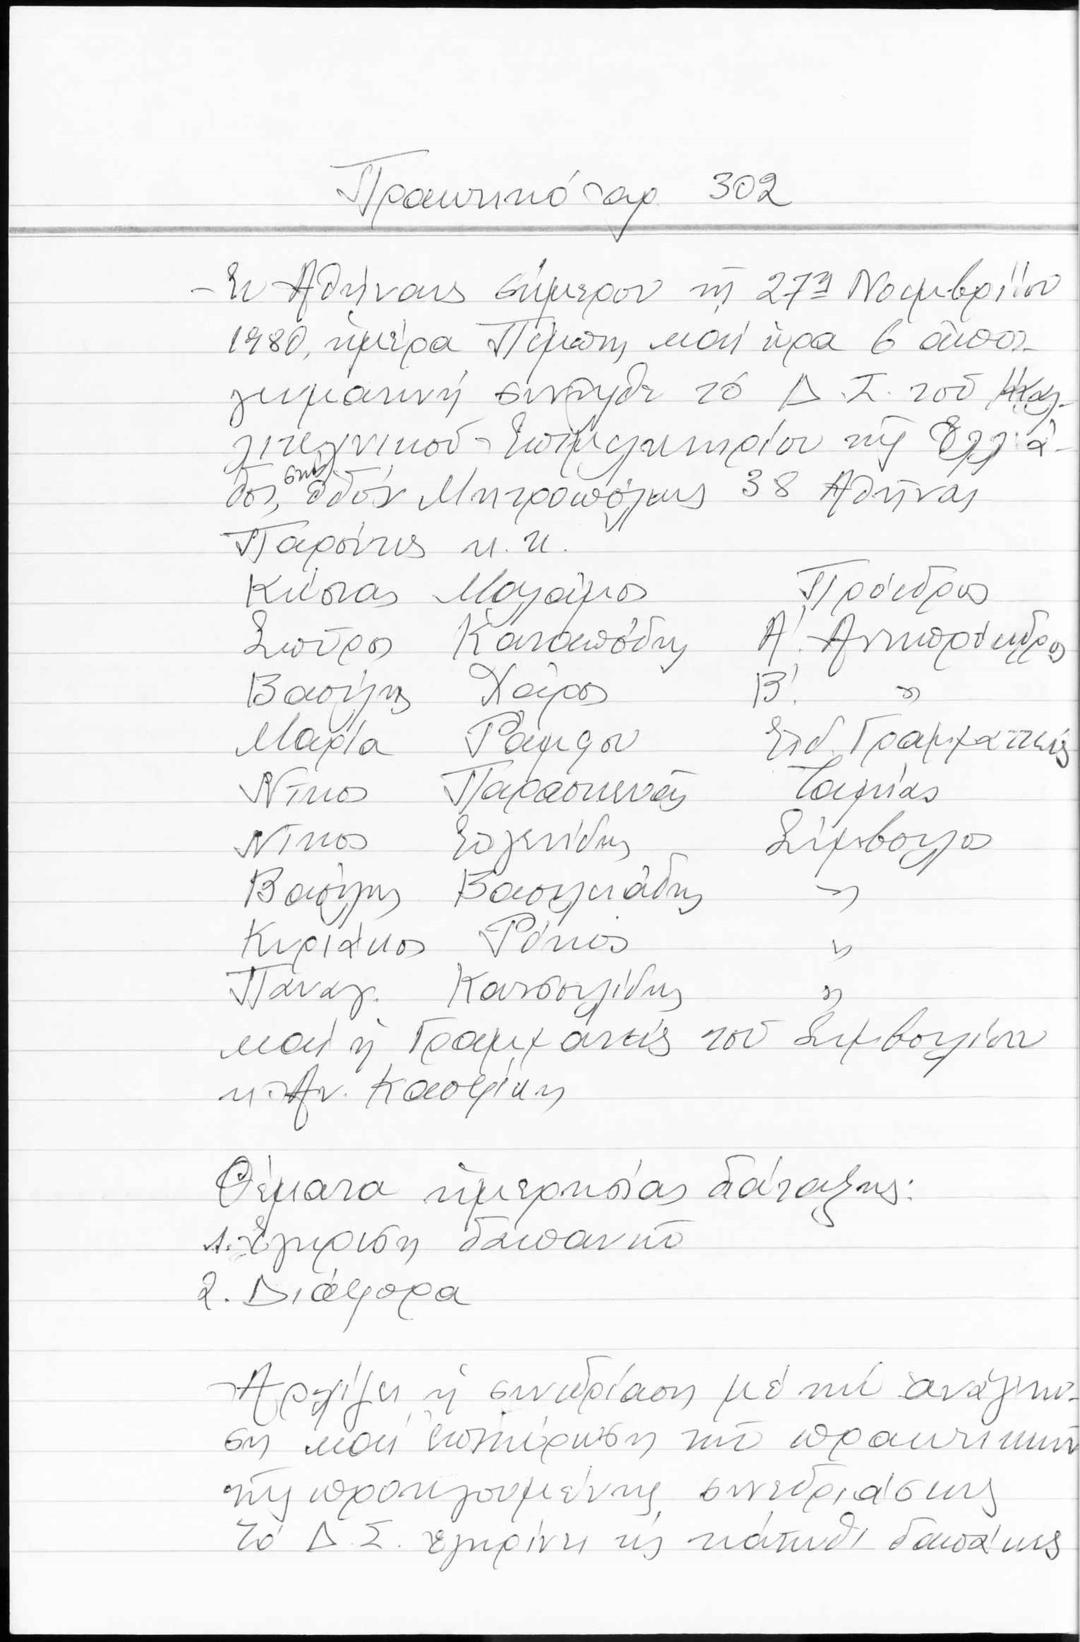 Πρακτικό ἀρ. 302
- Ἐν Ἀθήναις σήμερον τῇ 27η Νοεμβρίου
1980, ἡμέρα Πέμπτη καί ὥρα 6 ἀπο-
γευματινή συνῆλθε τό Δ.Σ. τοῦ Καλ-
λιτεχνικοῦ Ἐπιμελητηρίου τῆς Ἑλλά-
δος, στήν ὁδόν Μητροπόλεως 38 Ἀθήνας
Παρόντες κ.κ.
Κώστας Μαλάμος Πρόεδρος
Σπῦρος Καταπόδης Α΄. Ἀντιπρόεδρος
Βασίλης Χάρος Β΄. "
Μαρία Ράμφου Εἰδ. Γραμματεύς
Νῖκος Παρασκευᾶς Ταμίας
Νῖκος Εὐγενίδης Σύμβουλος
Βασίλης Βασιλειάδης "
Κυριάκος Ρόκος "
Παναγ. Κατσουλίδης "
καί ἡ Γραμματεύς τοῦ Συμβουλίου
κ. Αἰ. Καστρίτη
Θέματα ἡμερησίας διάταξης:
1. Ἔγκριση δαπανῶν
2. Διάφορα
Ἀρχίζει ἡ συνεδρίαση μέ τήν ἀνάγνω-
ση καί ἐπικύρωση τῶν πρακτικῶν
τῆς προηγουμένης συνεδριάσεως
Τό Δ.Σ. ἐγκρίνει τίς κάτωθι δαπάνες